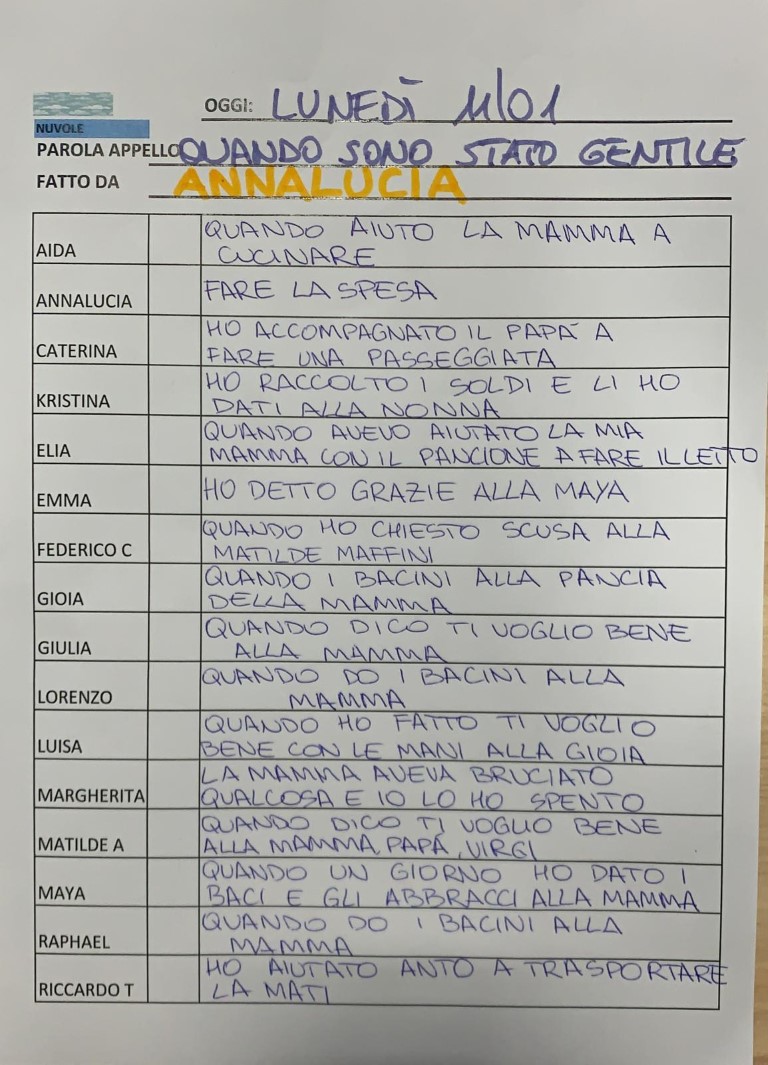 OGGI: LUNEDÌ 11/01
NUVOLE
PAROLA APPELLO QUANDO SONO STATO GENTILE
FATTO DA ANNALUCIA
AIDA QUANDO AIUTO LA MAMMA A
CUCINARE
ANNALUCIA FARE LA SPESA
CATERINA HO ACCOMPAGNATO IL PAPA' A
FARE UNA PASSEGGIATA
KRISTINA HO RACCOLTO I SOLDI E LI HO
DATI ALLA NONNA
ELIA QUANDO AVEVO AIUTATO LA MIA
MAMMA CON IL PANCIONE A FARE IL LETTO
EMMA HO DETTO GRAZIE ALLA MAYA
FEDERICO C QUANDO HO CHIESTO SCUSA ALLA
MATILDE MAFFINI
GIOIA QUANDO I BACINI ALLA PANCIA
DELLA MAMMA
GIULIA QUANDO DICO TI VOGLIO BENE
ALLA MAMMA
LORENZO QUANDO DO I BACINI ALLA
MAMMA
LUISA QUANDO HO FATTO TI VOGLIO
BENE CON LE MANI ALLA GIOIA
MARGHERITA LA MAMMA AVEVA BRUCIATO
QUALCOSA E IO LO HO SPENTO
MATILDE A QUANDO DICO TI VOGLIO BENE
ALLA MAMMA, PAPÁ, VIRGI
MAYA QUANDO UN GIORNO HO DATO I
BACI E GLI ABBRACCI ALLA MAMMA
RAPHAEL QUANDO DO I BACINI ALLA
MAMMA
RICCARDO T HO AIUTATO ANTO A TRASPORTARE
LA MATI